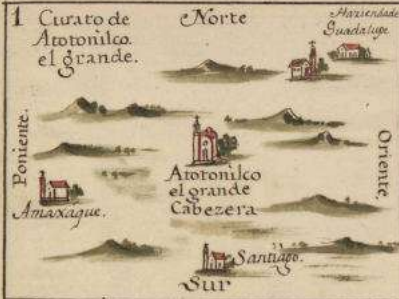 1 Curato de
Atotonilco
el grande.
Norte
Haziendade
Guadalupe
Poniente.
Oriente.
Atotonilco
el grande
Cabezera
Amaxaque.
Santiàgo.
Sur